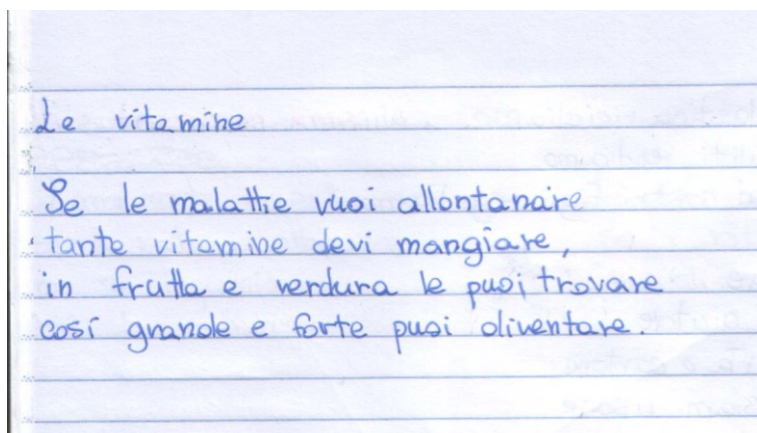 Le vitamine
Se le malattie vuoi allontanare
tante vitamine devi mangiare,
in frutta e verdura le puoi trovare
così grande e forte puoi diventare.